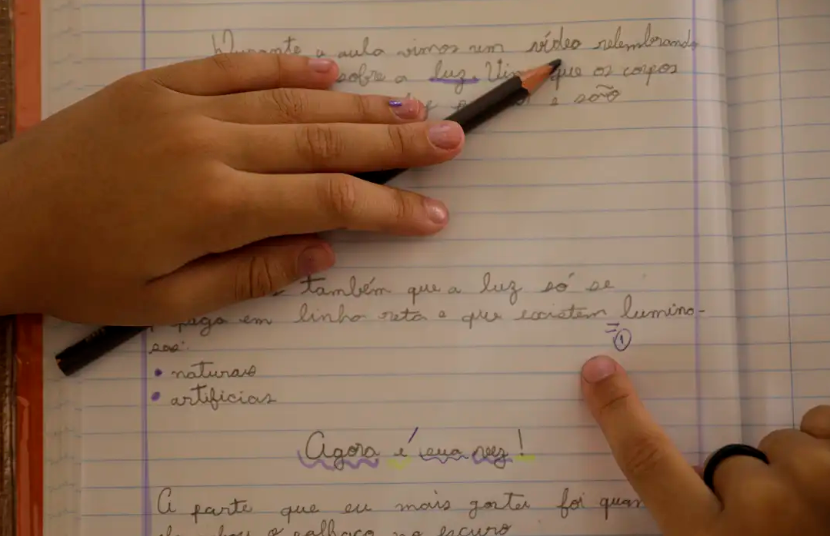 Durante a aula vimos um vídeo relembrando
sobre a luz. que os corpos
e são
também que a luz só se
em linha reta e que existem lumino-
sos:
= 1
• naturais
• artificias
Agora é sua vez!
A parte que eu mais gostei foi
o palhaço no escuro